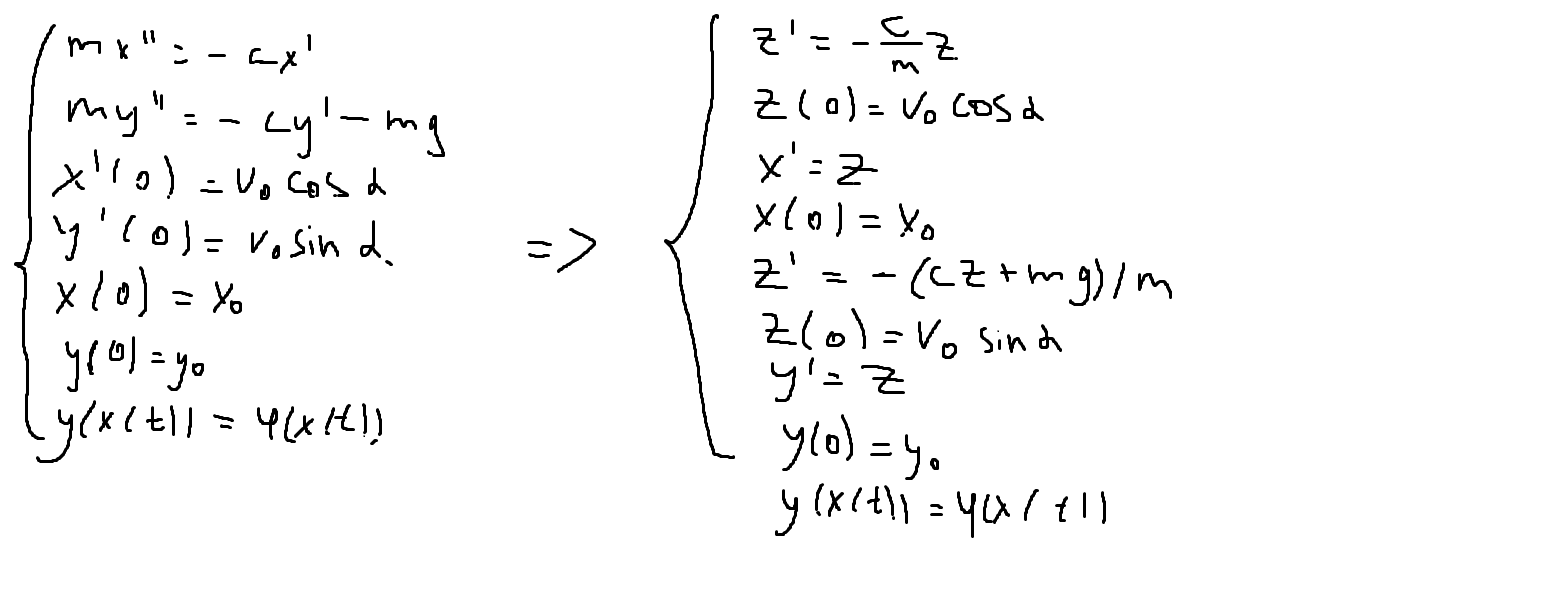 mx'' = - cx'
my'' = - cy' - mg
x'(0) = v₀ cos α
y'(0) = v₀ sin α.
x(0) = x₀
y(0) = y₀
y(x(t)) = φ(x(t))
=>
z' = - c/m z
z(0) = v₀ cos α
x' = z
x(0) = x₀
z' = - (cz + mg)/m
z(0) = v₀ sin α
y' = z
y(0) = y₀
y(x(t)) = φ(x(t))